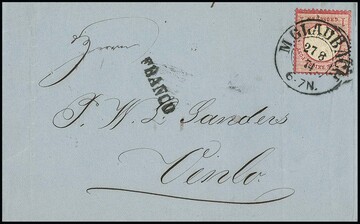 Herrn
M.GLADBACH
27 8
6-7N.
FRANCO
P. W. L. Sanders
Venlo.